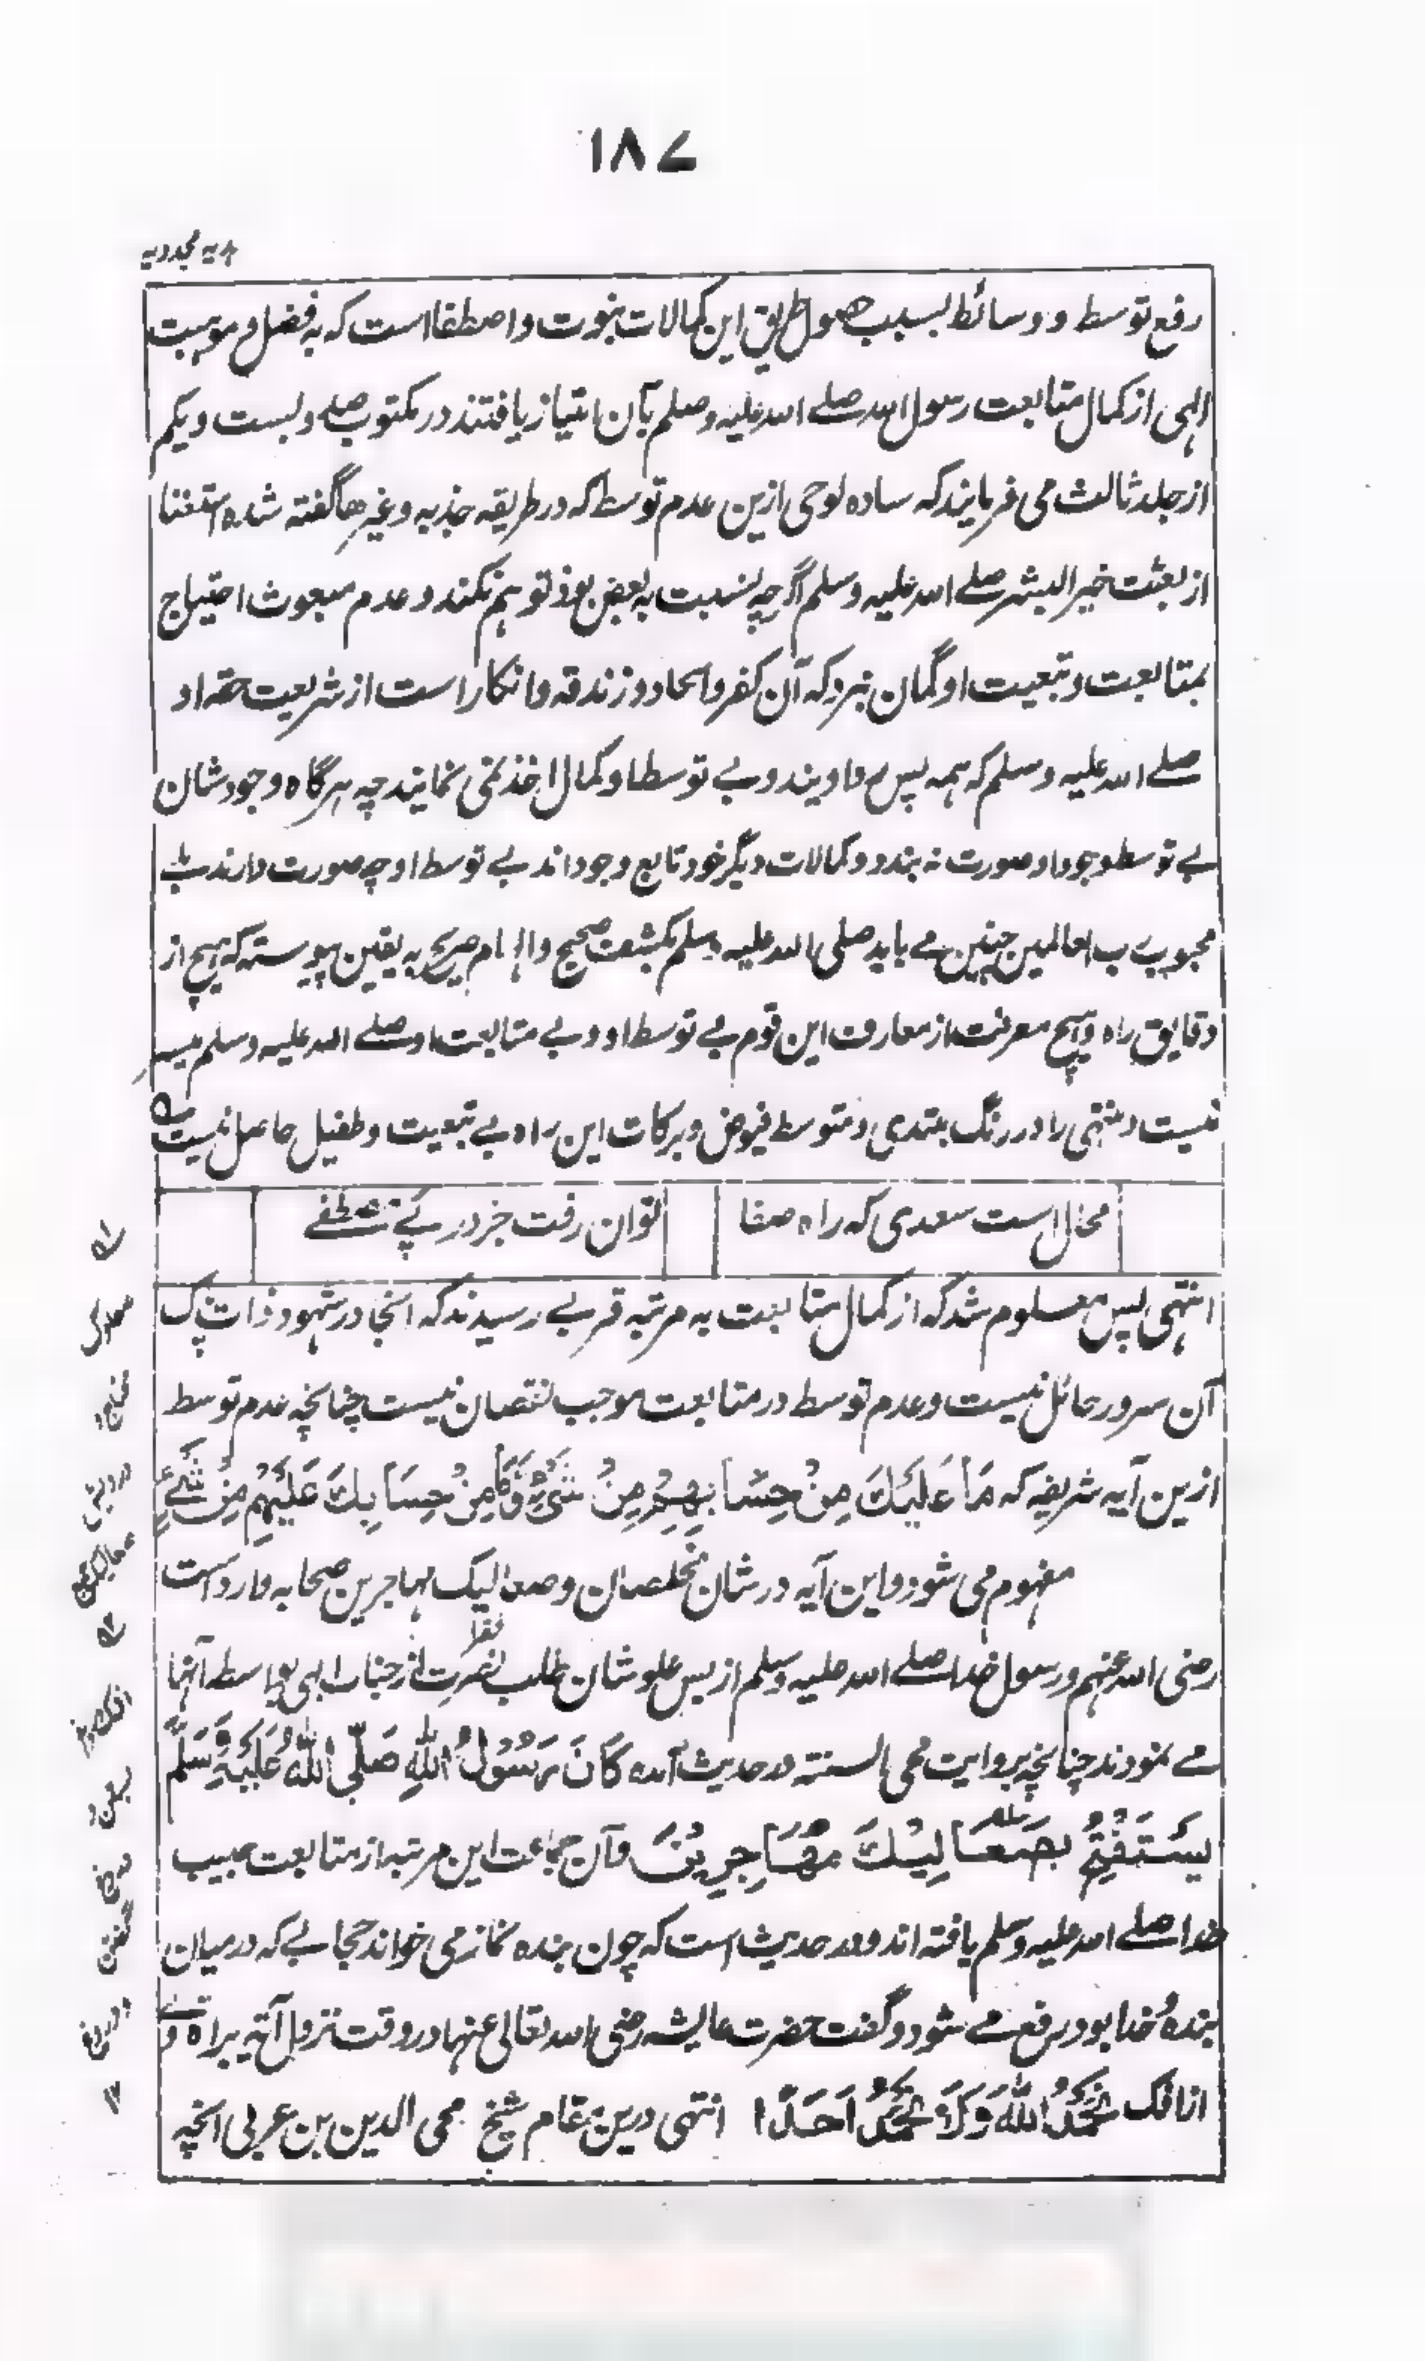 ۱۸۷
مجددیه
رفع توسط و وسائط بسبب حصول طریق این کمالات نبوت و اصطفا است که به فضل و موہبت
الٰہی از کمال متابعت رسول الله صلے الله علیه وصلم بآن امتیاز یافتند در مکتوب صد و بست و یکم
از جلد ثالث می فرمایند که ساده لوحی ازین عدم توسط که در طریقه جذبه و غیرها گفته شده استغنا
از بعثت خیر البشر صلے الله علیه وسلم اگرچه بنسبت به بعض بود توہم نکند و عدم مبعوث احتیاج
بمتابعت و تبعیت او گمان نبرد که آن کفر و الحاد و زندقه و انکار است از شریعت حقه او
صلے الله علیه وسلم که ہمه پس رو اویند و بے توسط او کمال اخذ نمی نمایند چه ہرگاه وجود شان
بے توسط وجود او صورت نه بندد و کمالات دیگر خود تابع وجود اند بے توسط او چه صورت دارند بلے
محبوب رب العالمین چنین مے باید صلی الله علیه وسلم بکشف صحیح و الہام صریح به یقین پیوسته که ہیچ از
دقایق راه و ہیچ معرفت از معارف این قوم بے توسط او و بے متابعت او صلے الله علیه وسلم میسر
نیست و منتہی را در رنگ مبتدی و متوسط فیوض و برکات این راه بے تبعیت و طفیل حاصل نیست
محال است سعدی که راه صفا
توان رفت جز در پے مصطفے
انتہی پس معلوم شد که از کمال متابعت به مرتبه قربے رسیدند که آنجا در شہود ذات پاک
آن سرور حائل نیست و عدم توسط در متابعت موجب نقصان نیست چنانچه عدم توسط
ازین آیه شریفه که مَا عَلَيْكَ مِنْ حِسَابِهِمْ مِنْ شَيْءٍ وَّمَا مِنْ حِسَابِكَ عَلَيْهِمْ مِنْ شَيْءٍ
مفہوم می شود و این آیه در شان مخلصان و صعالیک مہاجرین صحابه وارد است
رضی الله عنہم و رسول خدا صلے الله علیه وسلم از بس علو شان طلب نصرت از جناب الٰہی بواسطه آنہا
مے نمودند چنانچه بروایت محی السنته در حدیث آمده كَانَ رَسُوْلُ اللهِ صَلَّى اللهُ عَلَيْهِ وَسَلَّمَ
يَسْتَفْتِحُ بِصَعَالِيْكَ مُهَاجِرِيْنَ و آن جماعت این مرتبه از متابعت حبیب
خدا صلے الله علیه وسلم یافته اند و در حدیث است که چون بنده نماز می خواند حجابے که در میان
بنده و خدا بود رفع مے شود و گفت حضرت عایشه رضی الله تعالی عنہا در وقت نزول آیه براۃ وے
از افک نَحْمَدُ اللهَ وَلَا نَحْمَدُ اَحَدًا انتہی درین مقام شیخ محی الدین بن عربی آنچه